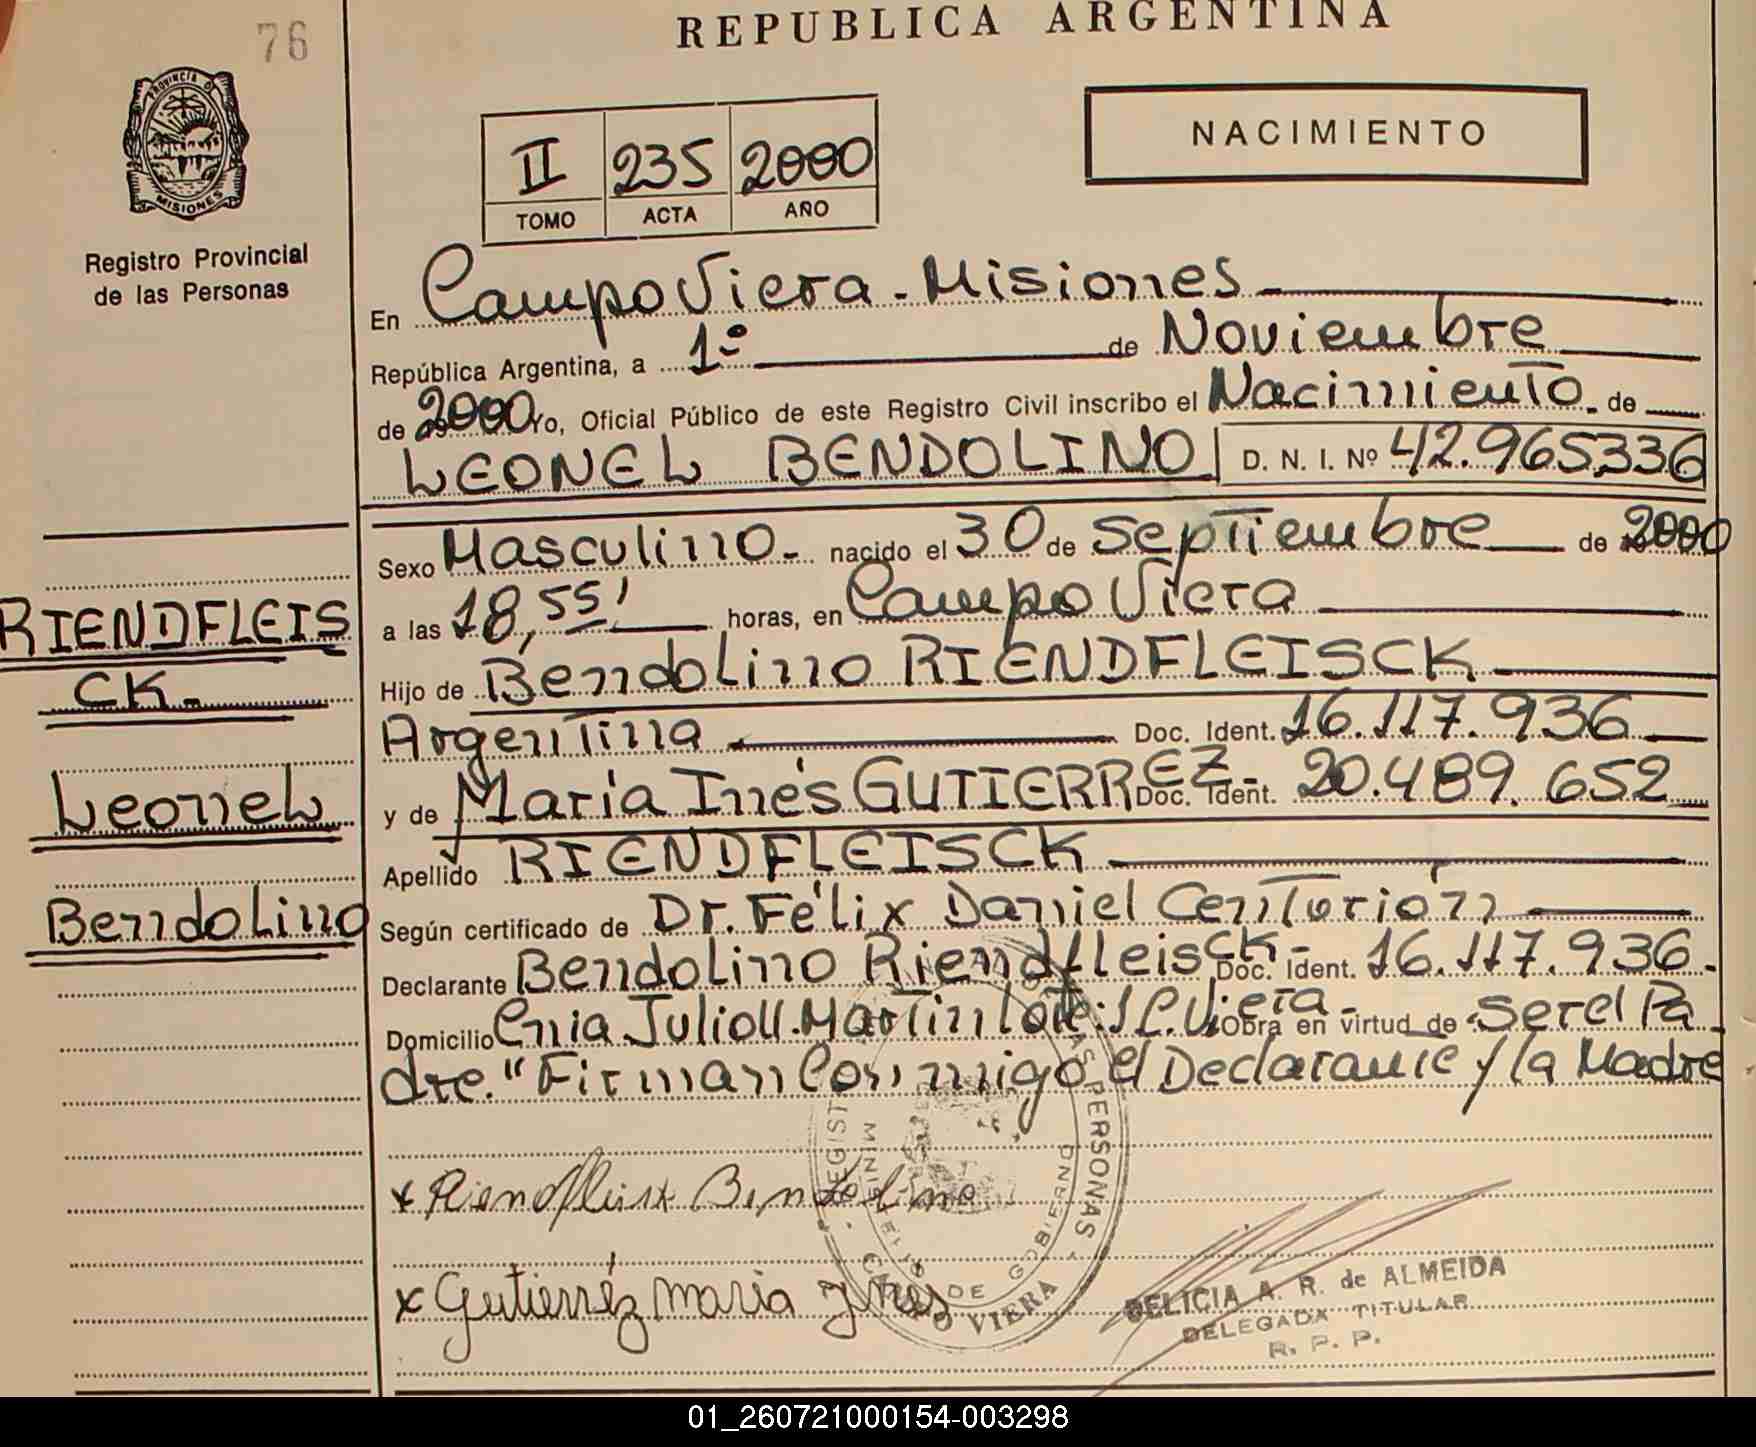 76
REPUBLICA ARGENTINA
PROVINCIA DE
MISIONES
Registro Provincial
de las Personas
II 235 2000
TOMO ACTA AÑO
NACIMIENTO
En Campo Viera - Misiones -
República Argentina, a 1º de Noviembre
de 2000 Yo, Oficial Público de este Registro Civil inscribo el Nacimiento - de
LEONEL BENDOLINO D. N. I. Nº 42.965336
Sexo Masculino - nacido el 30 de Septiembre de 2000
a las 18,55' horas, en Campo Viera
Hijo de Bendolino RIENDFLEISCK
Argentina Doc. Ident. 16.117.936
y de María Inés GUTIERREZ - Doc. Ident. 20.489.652
Apellido RIENDFLEISCK
Según certificado de Dr. Félix Daniel Centurión
Declarante Bendolino Riendfleisck - Doc. Ident. 16.117.936.
Domicilio Cnia Julio U. Martin Lote: 1 C. Viera - Obra en virtud de: ser el Pa
dre. " Firman Conmigo el Declarante y la Madre
RIENDFLEIS
CK.-
Leonel
Bendolino
x Riendfleisk Bendolino
x Gutierréz maria Ines
REGISTRO PERSONAS
MINISTERIO DE GOBIERNO
CAMPO VIERA
DELICIA A. R. de ALMEIDA
DELEGADA TITULAR
R. P. P.
01_260721000154-003298